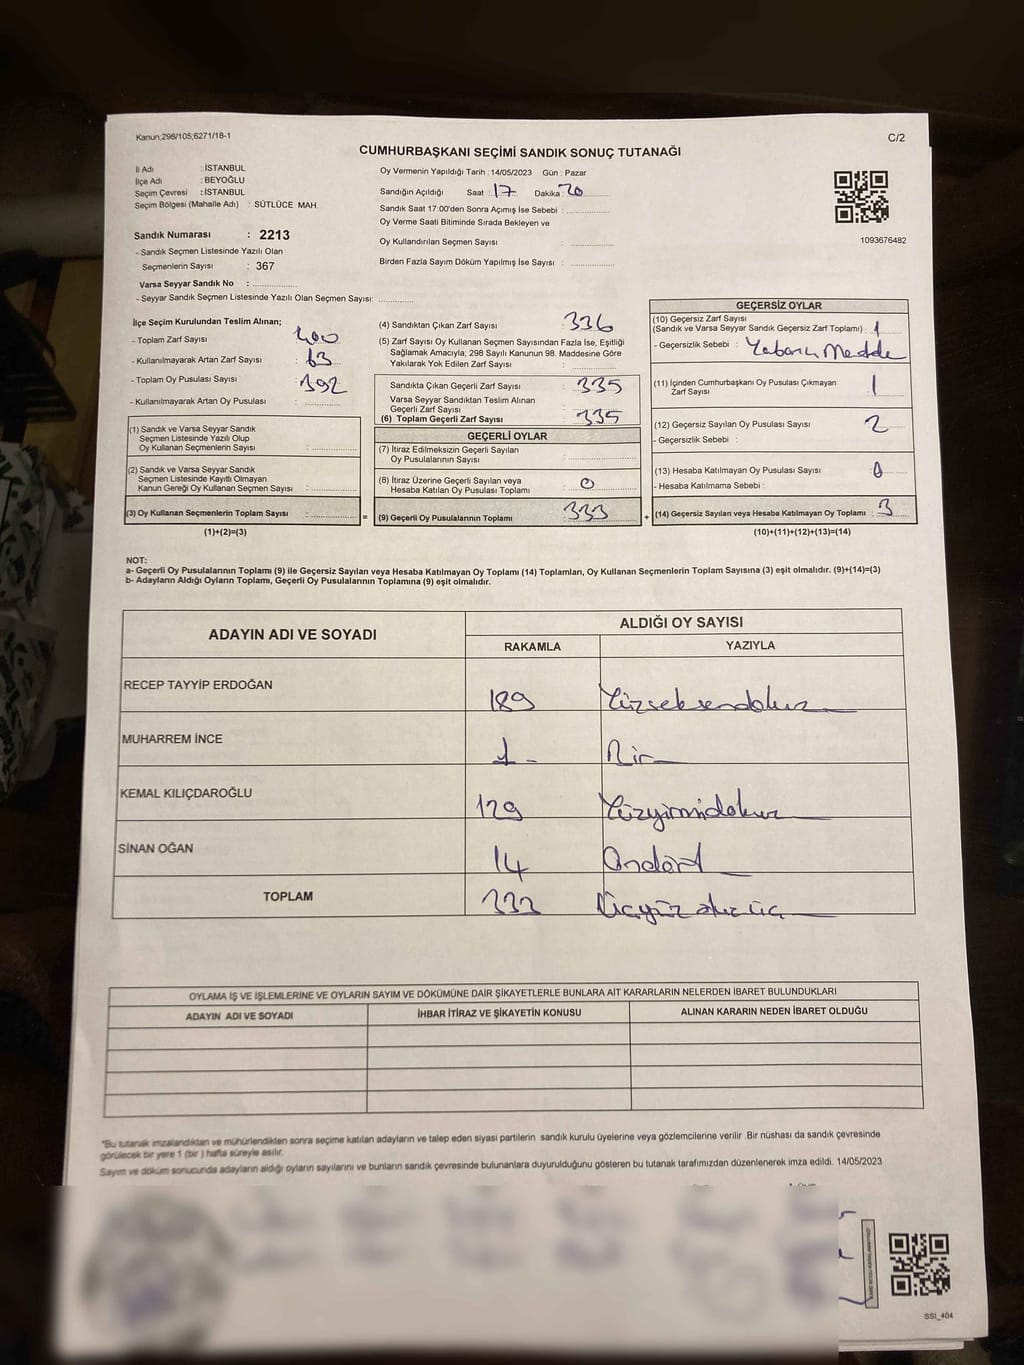 Kanun;298/105;6271/18-1
C/2
CUMHURBAŞKANI SEÇİMİ SANDIK SONUÇ TUTANAĞI
İl Adı : İSTANBUL
İlçe Adı : BEYOĞLU
Seçim Çevresi : İSTANBUL
Seçim Bölgesi (Mahalle Adı) : SÜTLÜCE MAH.
Oy Vermenin Yapıldığı Tarih : 14/05/2023 Gün : Pazar
Sandığın Açıldığı Saat : 17 Dakika 20
Sandık Saat 17:00'den Sonra Açımış İse Sebebi :
Oy Verme Saati Bitiminde Sırada Bekleyen ve
Oy Kullandırılan Seçmen Sayısı :
Birden Fazla Sayım Döküm Yapılmış İse Sayısı :
1093676482
Sandık Numarası : 2213
- Sandık Seçmen Listesinde Yazılı Olan
Seçmenlerin Sayısı : 367
Varsa Seyyar Sandık No :
- Seyyar Sandık Seçmen Listesinde Yazılı Olan Seçmen Sayısı:
İlçe Seçim Kurulundan Teslim Alınan;
- Toplam Zarf Sayısı : 400
- Kullanılmayarak Artan Zarf Sayısı : 63
- Toplam Oy Pusulası Sayısı : 392
- Kullanılmayarak Artan Oy Pusulası :
(1) Sandık ve Varsa Seyyar Sandık
Seçmen Listesinde Yazılı Olup
Oy Kullanan Seçmenlerin Sayısı :
(2) Sandık ve Varsa Seyyar Sandık
Seçmen Listesinde Kayıtlı Olmayan
Kanun Gereği Oy Kullanan Seçmen Sayısı :
(3) Oy Kullanan Seçmenlerin Toplam Sayısı :
(1)+(2)=(3)
=
(4) Sandıktan Çıkan Zarf Sayısı : 336
(5) Zarf Sayısı Oy Kullanan Seçmen Sayısından Fazla İse, Eşitliği
Sağlamak Amacıyla; 298 Sayılı Kanunun 98. Maddesine Göre
Yakılarak Yok Edilen Zarf Sayısı :
Sandıkta Çıkan Geçerli Zarf Sayısı : 335
Varsa Seyyar Sandıktan Teslim Alınan
Geçerli Zarf Sayısı :
(6) Toplam Geçerli Zarf Sayısı : 335
GEÇERLİ OYLAR
(7) İtiraz Edilmeksizin Geçerli Sayılan
Oy Pusulalarının Sayısı :
(8) İtiraz Üzerine Geçerli Sayılan veya
Hesaba Katılan Oy Pusulası Toplamı : 0
(9) Geçerli Oy Pusulalarının Toplamı : 333
+
GEÇERSİZ OYLAR
(10) Geçersiz Zarf Sayısı
(Sandık ve Varsa Seyyar Sandık Geçersiz Zarf Toplamı) : 1
- Geçersizlik Sebebi : Yabancı Madde
(11) İçinden Cumhurbaşkanı Oy Pusulası Çıkmayan
Zarf Sayısı : 1
(12) Geçersiz Sayılan Oy Pusulası Sayısı : 2
- Geçersizlik Sebebi :
(13) Hesaba Katılmayan Oy Pusulası Sayısı : 0
- Hesaba Katılmama Sebebi :
(14) Geçersiz Sayılan veya Hesaba Katılmayan Oy Toplamı : 3
(10)+(11)+(12)+(13)=(14)
NOT:
a- Geçerli Oy Pusulalarının Toplamı (9) ile Geçersiz Sayılan veya Hesaba Katılmayan Oy Toplamı (14) Toplamları, Oy Kullanan Seçmenlerin Toplam Sayısına (3) eşit olmalıdır. (9)+(14)=(3)
b- Adayların Aldığı Oyların Toplamı, Geçerli Oy Pusulalarının Toplamına (9) eşit olmalıdır.
ADAYIN ADI VE SOYADI
ALDIĞI OY SAYISI
RAKAMLA YAZIYLA
RECEP TAYYİP ERDOĞAN 189 Yüzseksendokuz
MUHARREM İNCE 1 Bir
KEMAL KILIÇDAROĞLU 129 Yüzyirmidokuz
SİNAN OĞAN 14 Ondört
TOPLAM 333 Üçyüz otuz üç
OYLAMA İŞ VE İŞLEMLERİNE VE OYLARIN SAYIM VE DÖKÜMÜNE DAİR ŞİKAYETLERLE BUNLARA AİT KARARLARIN NELERDEN İBARET BULUNDUKLARI
ADAYIN ADI VE SOYADI İHBAR İTİRAZ VE ŞİKAYETİN KONUSU ALINAN KARARIN NEDEN İBARET OLDUĞU
*Bu tutanak imzalandıktan ve mühürlendikten sonra seçime katılan adayların ve talep eden siyasi partilerin sandık kurulu üyelerine veya gözlemcilerine verilir. Bir nüshası da sandık çevresinde
görülecek bir yere 1 (bir ) hafta süreyle asılır.
Sayım ve döküm sonucunda adayların aldığı oyların sayılarını ve bunların sandık çevresinde bulunanlara duyurulduğunu gösteren bu tutanak tarafımızdan düzenlenerek imza edildi. 14/05/2023
SSI_404